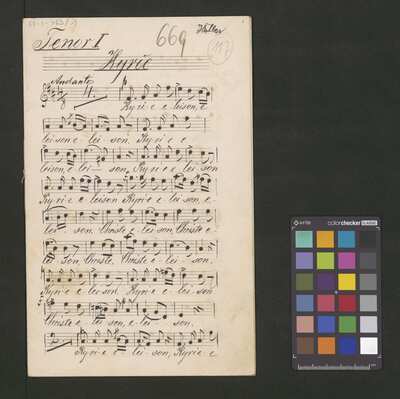 Tenor I
669
Walter
(117)
Kyrie
Andante
4.
Ky-ri-e e-leison, e-
leison, e-lei-son, Ky-ri-e
leison, e-lei-son, Ky-ri-e e-lei-son
Ky-ri-e e-leison Kyri-e e-lei-son, e-
lei-son. Christe e-lei-son, Christe e-
lei-son. Christe, Christe e-lei-son.
Kyri-e e-lei-son Kyri-e e-lei-son
Christe e-lei-son, e-lei-son.
Kyri-e e-lei-son, Kyrie e
colorchecker CLASSIC